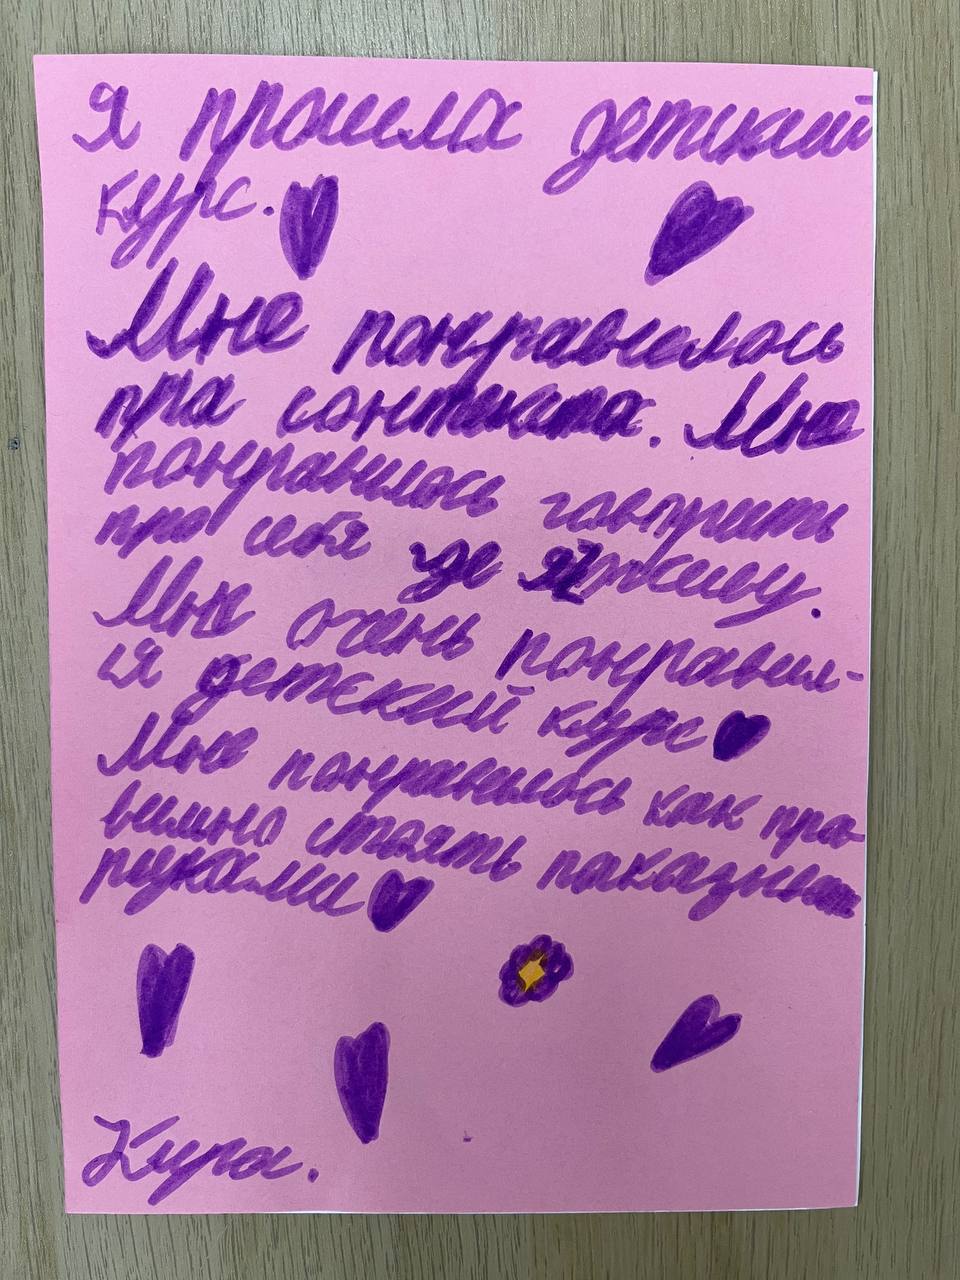 я прошла детский
курс.
Мне понравилось
про Мне
понравилось говорить
про себя где я живу.
Мне очень понравил-
ся детский курс
Мне понравилось как пра-
вильно стоять паказыват
руками
Кира.